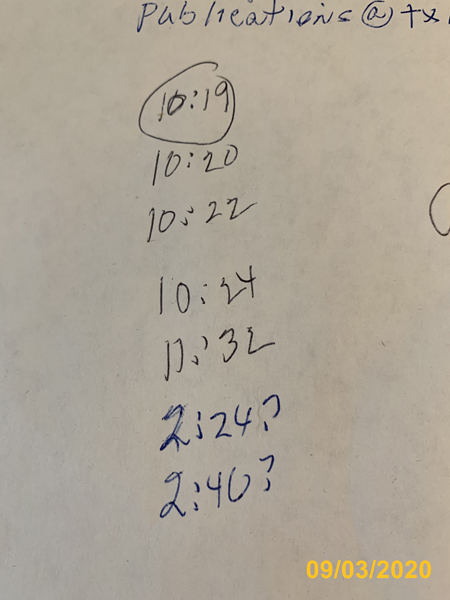 Publications@tx
10:19
10:20
10:22
10:24
11:32
2:24?
2:40?
09/03/2020